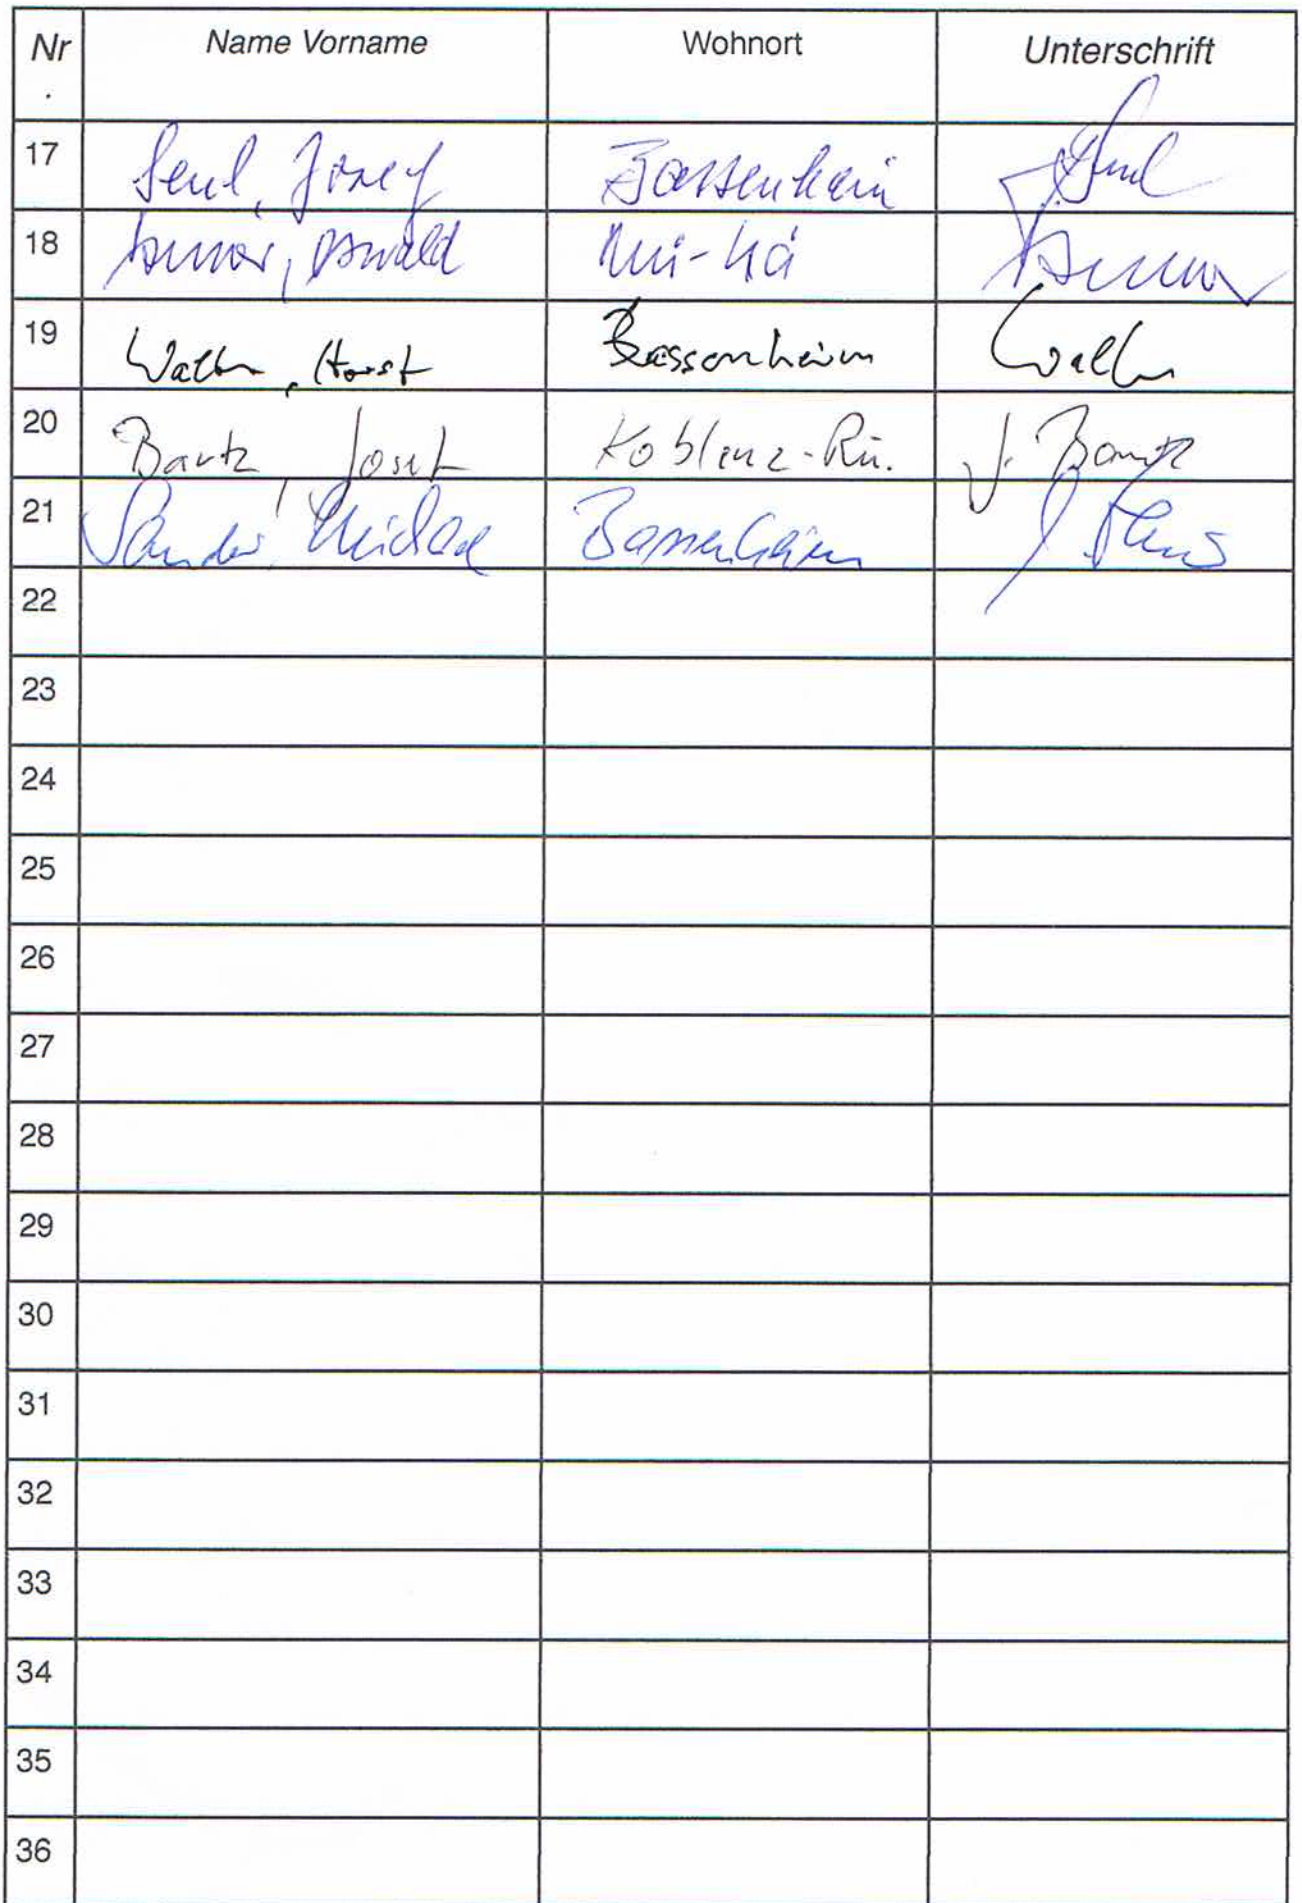 Nr. Name Vorname Wohnort Unterschrift
17 Seul, Josef Bassenheim Seul
18 Oswald Mü-Kä
19 Horst Bassenheim
20 Bartz, Josef Koblenz-Rü. J. Bartz
21 Sander Michael Bassenheim
22
23
24
25
26
27
28
29
30
31
32
33
34
35
36